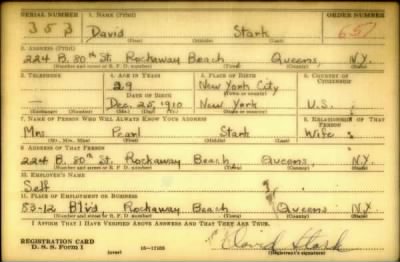 SERIAL NUMBER 1. NAME (Print) ORDER NUMBER
353 David Stark 657
(First) (Middle) (Last)
2. ADDRESS (Print)
224 B. 80th St. Rockaway Beach Queens, N.Y.
(Number and street or R. F. D. number) (Town) (County) (State)
3. TELEPHONE 4. AGE IN YEARS 5. PLACE OF BIRTH 6. COUNTRY OF CITIZENSHIP
29 New York City
DATE OF BIRTH (Town or county)
— Dec. 25, 1910 New York U.S.
(Exchange) (Number) (Mo.) (Day) (Yr.) (State or country)
7. NAME OF PERSON WHO WILL ALWAYS KNOW YOUR ADDRESS 8. RELATIONSHIP OF THAT PERSON
Mrs. Pearl Stark Wife
(Mr., Mrs., Miss) (First) (Middle) (Last)
9. ADDRESS OF THAT PERSON
224 B. 80th St. Rockaway Beach Queens, N.Y.
(Number and street or R. F. D. number) (Town) (County) (State)
10. EMPLOYER'S NAME
Self
11. PLACE OF EMPLOYMENT OR BUSINESS
83-12 Blvd, Rockaway Beach Queens N.Y.
(Number and street or R. F. D. number) (Town) (County) (State)
I AFFIRM THAT I HAVE VERIFIED ABOVE ANSWERS AND THAT THEY ARE TRUE.
REGISTRATION CARD
D. S. S. Form 1 (over) 16—17105 David Stark
(Registrant's signature)